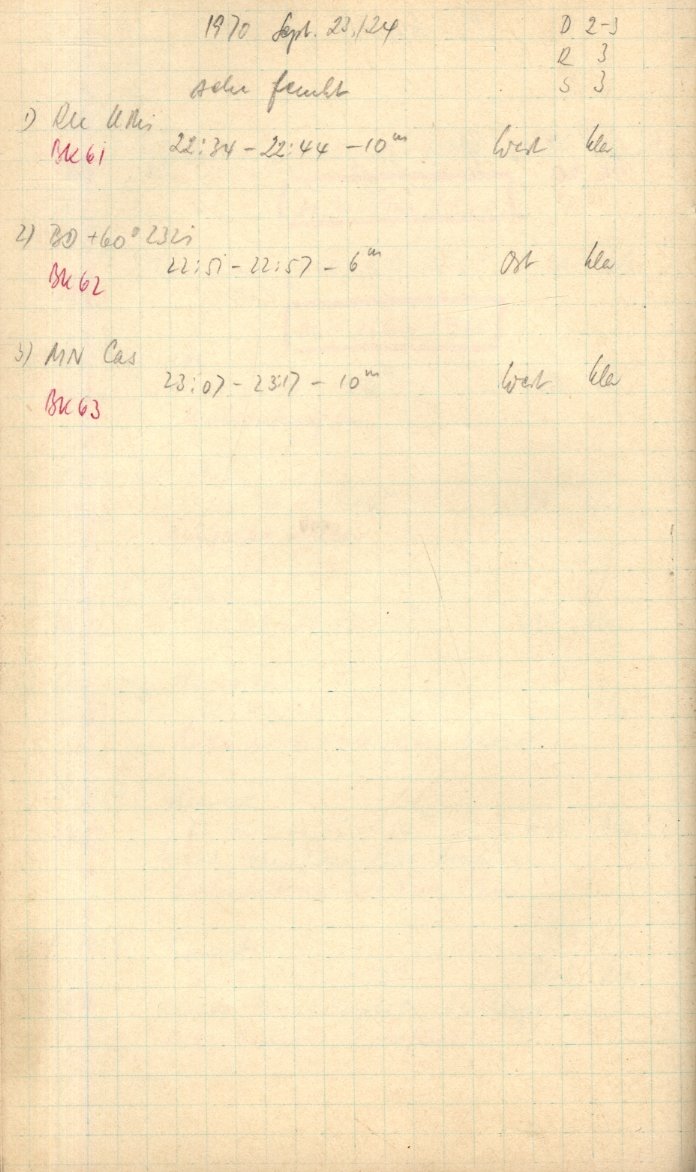 1970 Sept. 23./24 D 2-3
R 3
sehr feucht S 3
1) RU UMi
BK61 22:34 - 22:44 - 10ᵐ West klar
2) BD +60° 2321
BK62 22:51 - 22:57 - 6ᵐ Ost klar
3) MN Cas
BK63 23:07 - 23:17 - 10ᵐ West klar